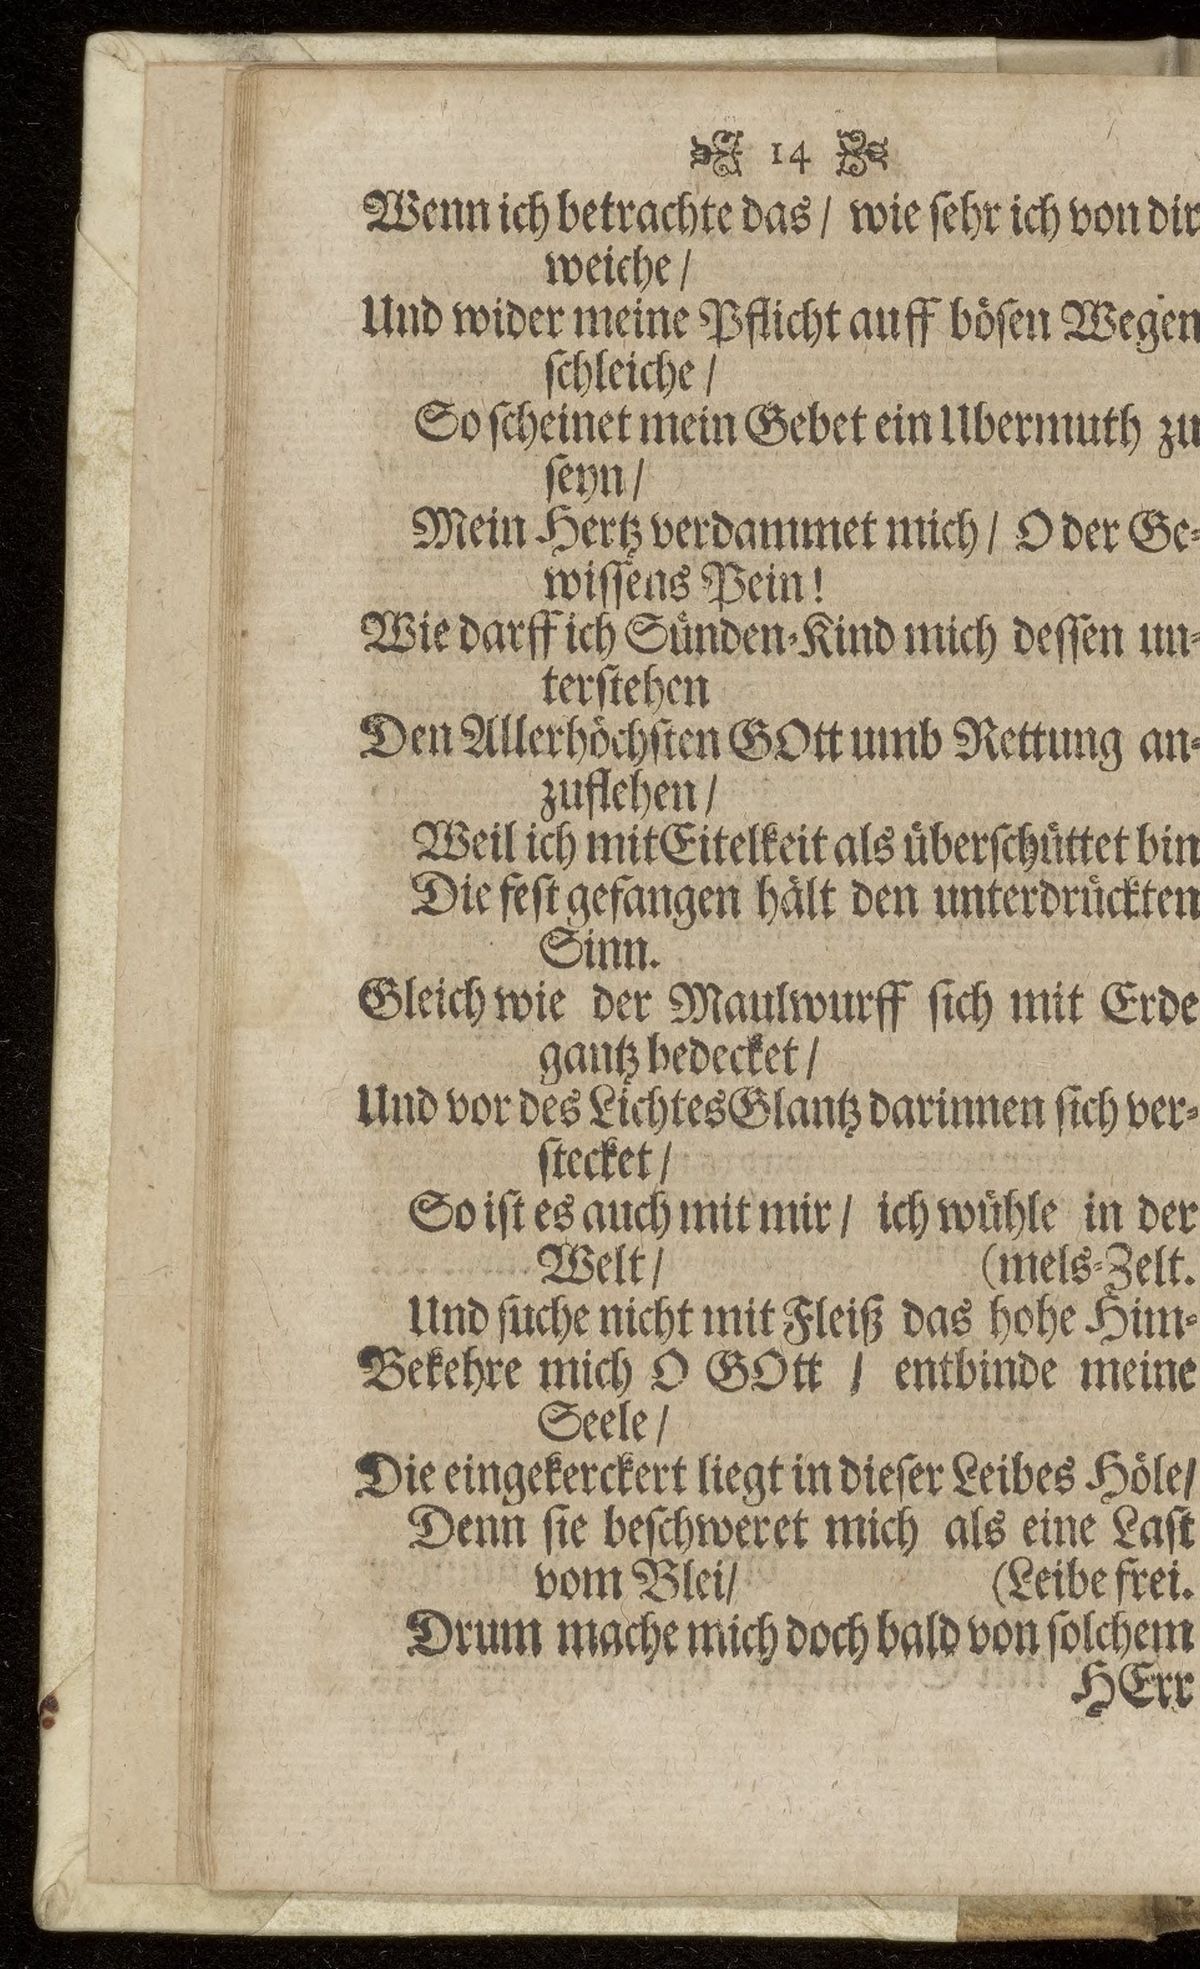 14
Wenn ich betrachte das / wie sehr ich von dir
weiche /
Und wider meine Pflicht auff bösen Wegen
schleiche /
So scheinet mein Gebet ein Ubermuth zu
seyn /
Mein Hertz verdammet mich / O der Ge-
wissens Pein!
Wie darff ich Sünden-Kind mich dessen un-
terstehen
Den Allerhöchsten GOtt umb Rettung an-
zuflehen /
Weil ich mit Eitelkeit als überschüttet bin
Die fest gefangen hält den unterdrückten
Sinn.
Gleich wie der Maulwurff sich mit Erde
gantz bedecket /
Und vor des Lichtes Glantz darinnen sich ver-
stecket /
So ist es auch mit mir / ich wühle in der
Welt / (mels-Zelt.
Und suche nicht mit Fleiß das hohe Him-
Bekehre mich O GOtt / entbinde meine
Seele /
Die eingekerckert liegt in dieser Leibes Höle/
Denn sie beschweret mich als eine Last
vom Blei/ (Leibe frei.
Drum mache mich doch bald von solchem
HErr